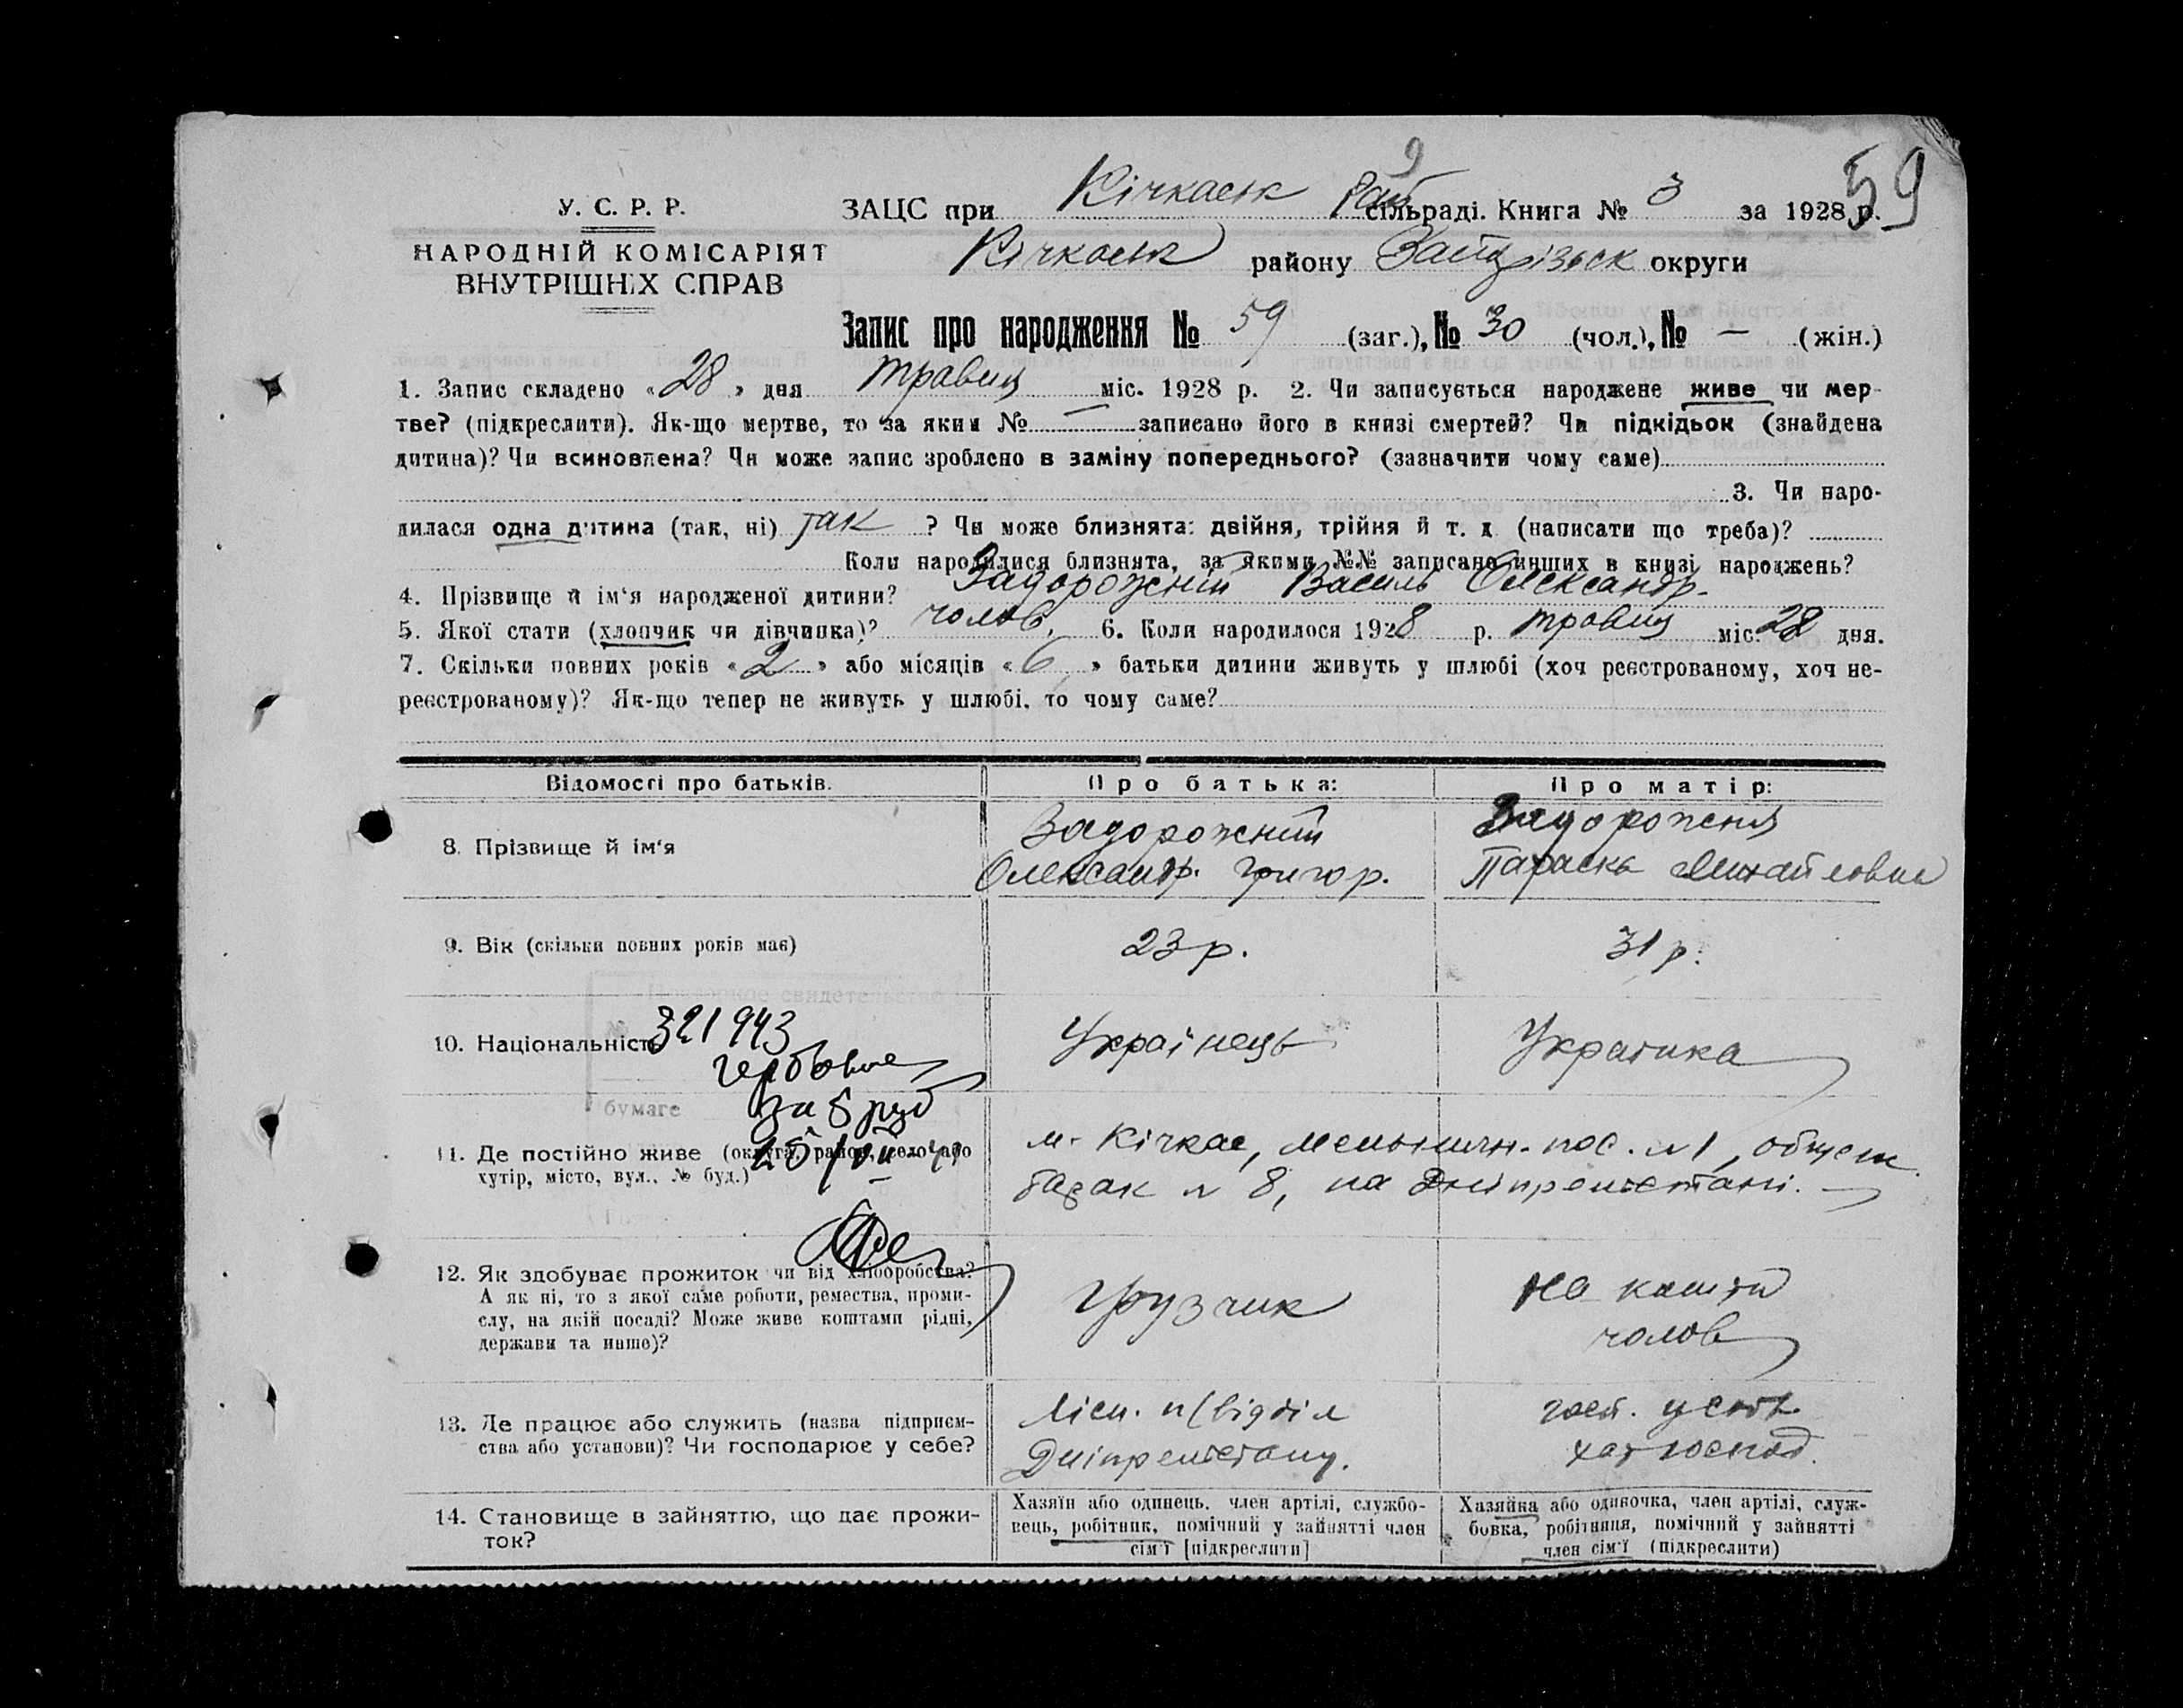 9
59
У. С. Р. Р.
НАРОДНІЙ КОМІСАРІЯТ
ВНУТРІШНІХ СПРАВ
ЗАЦС при Кічкаськ Рай сільраді. Книга № 3 за 1928 р.
Кічкаськ району Запорізьк округи
Запис про народження № 59 (заг.), № 30 (чол.), № – (жін.)
1. Запис складено «28» дня травня міс. 1928 р. 2. Чи записується народжене живе чи мер-
тве? (підкреслити). Як-що мертве, то за яким № — записано його в книзі смертей? Чи підкідьок (знайдена
дитина)? Чи всиновлена? Чи може запис зроблено в заміну попереднього? (зазначити чому саме)
3. Чи наро-
дилася одна дитина (так, ні) так ? Чи може близнята: двійня, трійня й т. д. (написати що треба)?
Коли народилися близнята, за якими №№ записано инших в книзі народжень?
4. Прізвище й ім‘я народженої дитини? Задорожній Василь Олександр.
5. Якої стати (хлопчик чи дівчинка)? чолов. 6. Коли народилося 1928 р. травня міс. 28 дня.
7. Скільки повних років «2» або місяців «6» батьки дитини живуть у шлюбі (хоч реєстрованому, хоч не-
реєстрованому)? Як-що тепер не живуть у шлюбі, то чому саме?
Відомості про батьків. Про батька: Про матір:
8. Прізвище й ім‘я Задорожний Олександр. Григор. Задорожня Параска Михайловна
9. Вік (скільки повних років має) 23 р. 31 р.
10. Національність Українець Украінка
321943
гербовые
за 5 руб
11. Де постійно живе (округа, район, село або
хутір, місто, вул., № буд.)
м. Кічкас, Мельничн. пос. № 1, общеж.
барак № 8, на Дніпрельстані.
12. Як здобуває прожиток чи від хліборобства?
А як ні, то з якої саме роботи, ремества, проми-
слу, на якій посаді? Може живе коштами рідні,
держави та инше)?
Грузчик
На кошти
чолов
13. Де працює або служить (назва підприєм-
ства або установи)? Чи господарює у себе?
Лісн. п/відділ
Дніпрельстану.
хат господ.
14. Становище в зайняттю, що дає прожи-
ток?
Хазяїн або одинець, член артілі, службо-
вець, робітник, помічний у зайнятті член
сім‘ї [підкреслити]
Хазяйка або одиночка, член артілі, служ-
бовка, робітниця, помічний у зайнятті
член сім‘ї (підкреслити)